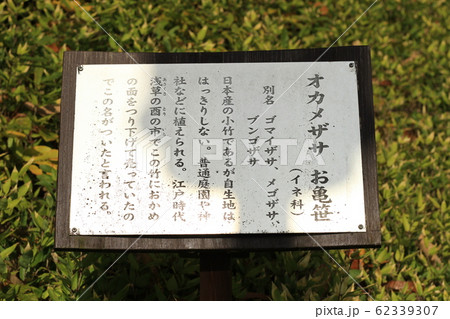 オカメザサ　お亀笹
（イネ科）
別名　ゴマイザサ、メゴザサ、
ブンゴザサ
日本産の小竹であるが自生地は
はっきりしない。普通庭園や神
社などに植えられる。江戸時代
浅草の酉の市でこの竹におかめ
の面をつり下げて売っていたの
でこの名がついたと言われる。
PIXTA
pixta.jp - 62339307